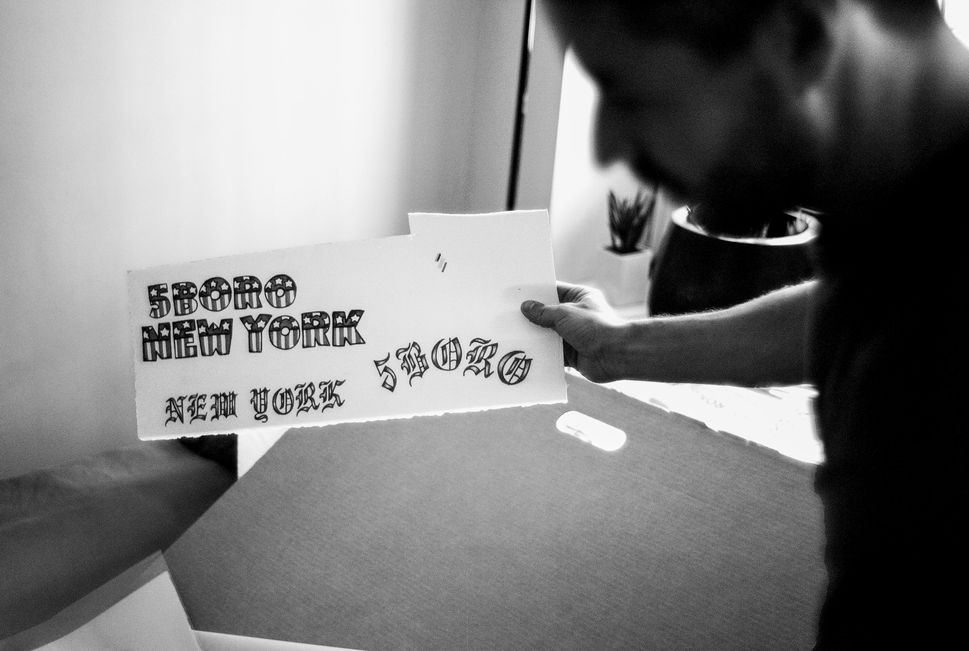 5BORO
NEW YORK
NEW YORK
5BORO